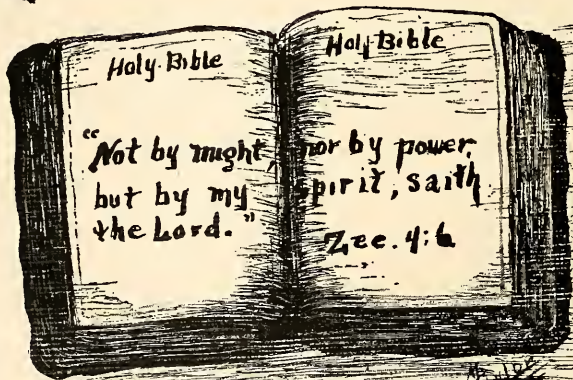 Holy Bible
Holy Bible
"Not by might, nor by power,
but by my spirit, saith
the Lord."
Zec. 4:6